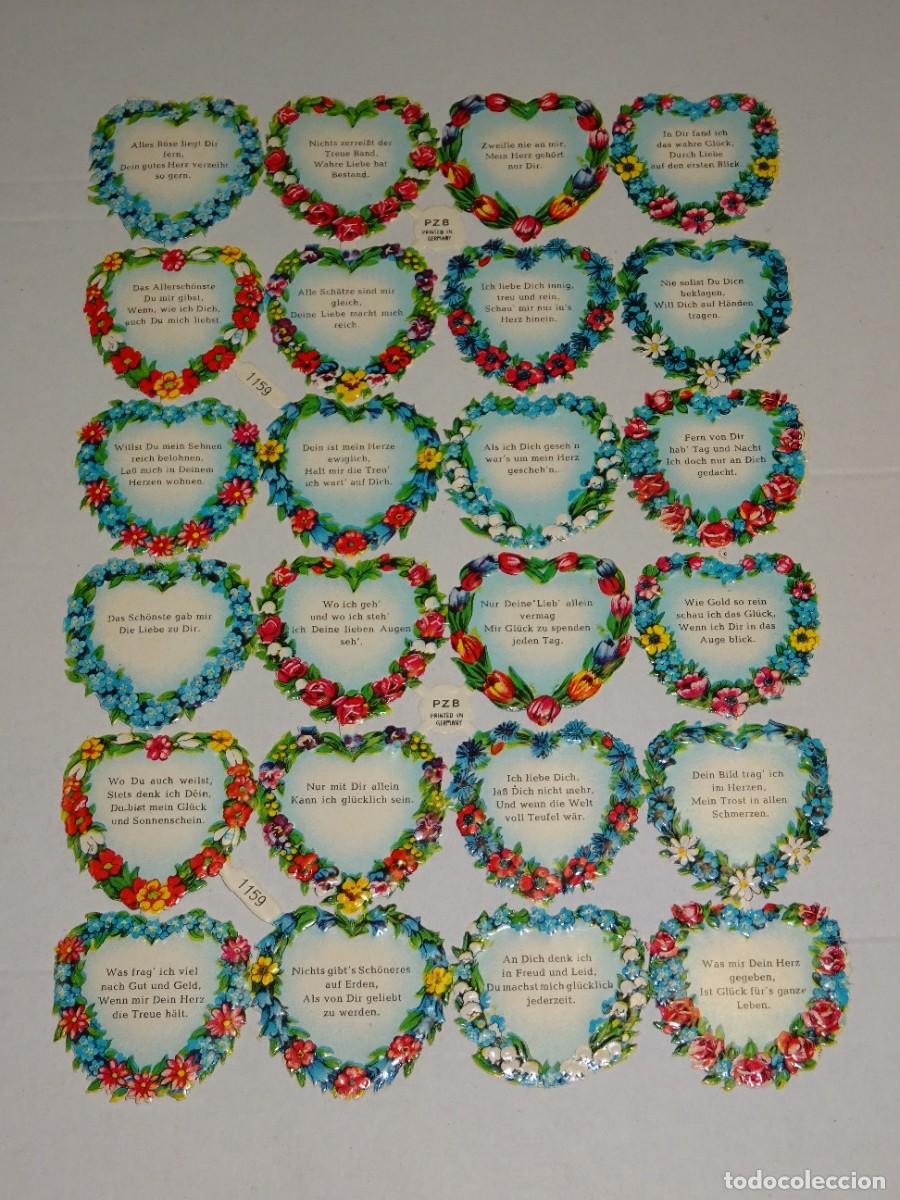 Alles Böse liegt Dir
fern,
Dein gutes Herz verzeiht
so gern.
Nichts zerreißt der
Treue Band,
Wahre Liebe hat
Bestand.
Zweifle nie an mir,
Mein Herz gehört
nur Dir.
In Dir fand ich
das wahre Glück,
Durch Liebe
auf den ersten Blick.
PZB
PRINTED IN
GERMANY
Das Allerschönste
Du mir gibst,
Wenn, wie ich Dich,
auch Du mich liebst.
Alle Schätze sind mir
gleich,
Deine Liebe macht mich
reich.
Ich liebe Dich innig,
treu und rein,
Schau' mir nur in's
Herz hinein.
Nie sollst Du Dich
beklagen,
Will Dich auf Händen
tragen.
1159
Willst Du mein Sehnen
reich belohnen,
Laß mich in Deinem
Herzen wohnen.
Dein ist mein Herze
ewiglich,
Halt mir die Treu'
ich wart' auf Dich.
Als ich Dich geseh'n
war's um mein Herz
gescheh'n..
Fern von Dir
hab' Tag und Nacht
Ich doch nur an Dich
gedacht.
Das Schönste gab mir
Die Liebe zu Dir.
Wo ich geh'
und wo ich steh'
ich Deine lieben Augen
seh'.
Nur Deine "Lieb' allein
vermag
Mir Glück zu spenden
jeden Tag.
Wie Gold so rein
schau ich das Glück,
Wenn ich Dir in das
Auge blick.
PZB
PRINTED IN
GERMANY
Wo Du auch weilst,
Stets denk ich Dein,
Du bist mein Glück
und Sonnenschein.
Nur mit Dir allein
Kann ich glücklich sein.
Ich liebe Dich,
laß Dich nicht mehr,
Und wenn die Welt
voll Teufel wär.
Dein Bild trag' ich
im Herzen,
Mein Trost in allen
Schmerzen.
1159
Was frag' ich viel
nach Gut und Geld,
Wenn mir Dein Herz
die Treue hält.
Nichts gibt's Schöneres
auf Erden,
Als von Dir geliebt
zu werden.
An Dich denk ich
in Freud und Leid,
Du machst mich glücklich
jederzeit.
Was mir Dein Herz
gegeben,
Ist Glück für's ganze
Leben.
todocoleccion